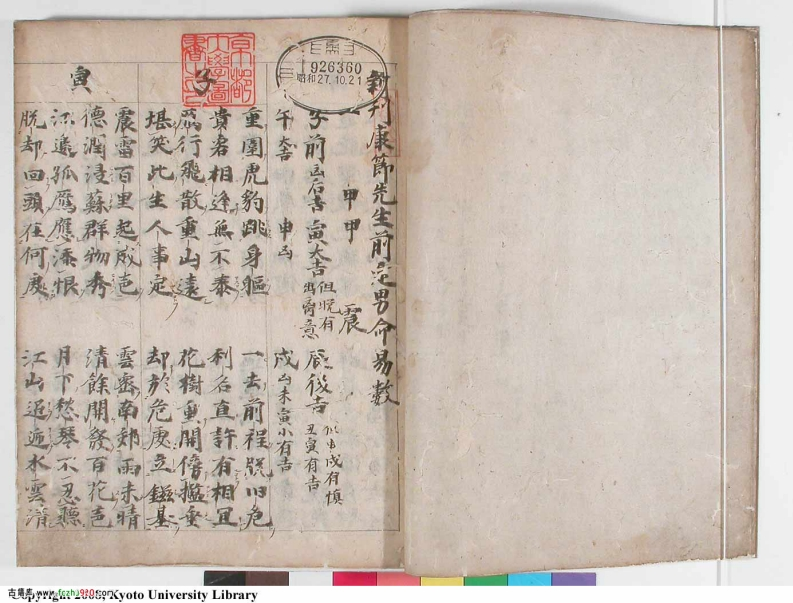 新刊康節先生前定男命易數
一 甲甲 震
子前凶后吉 寅大吉 但恍有 辰後吉
丑寅有吉
午大吉 申凶 戌凶未寅小有吉
子
重圍虎豹跳身軀 一去前程脱旧危
貴君相逢無不泰 利名直許有相宜
鴈行飛散重山遠 花樹重開傍檻垂
堪笑此生人事定 却於危處立鎡基
寅
震雷百里起威色 雲密南郊雨未晴
德潤浸蘇群物秀 清餘開發百花色
江邊孤鴈應添恨 月下愁琴不忍聽
脱却回頭在何處 江山迢遞水雲清
京都
大學圖
書之印
926360
昭和27.10.21
古籍库 www.fozhu920.com
Copyright Kyoto University Library